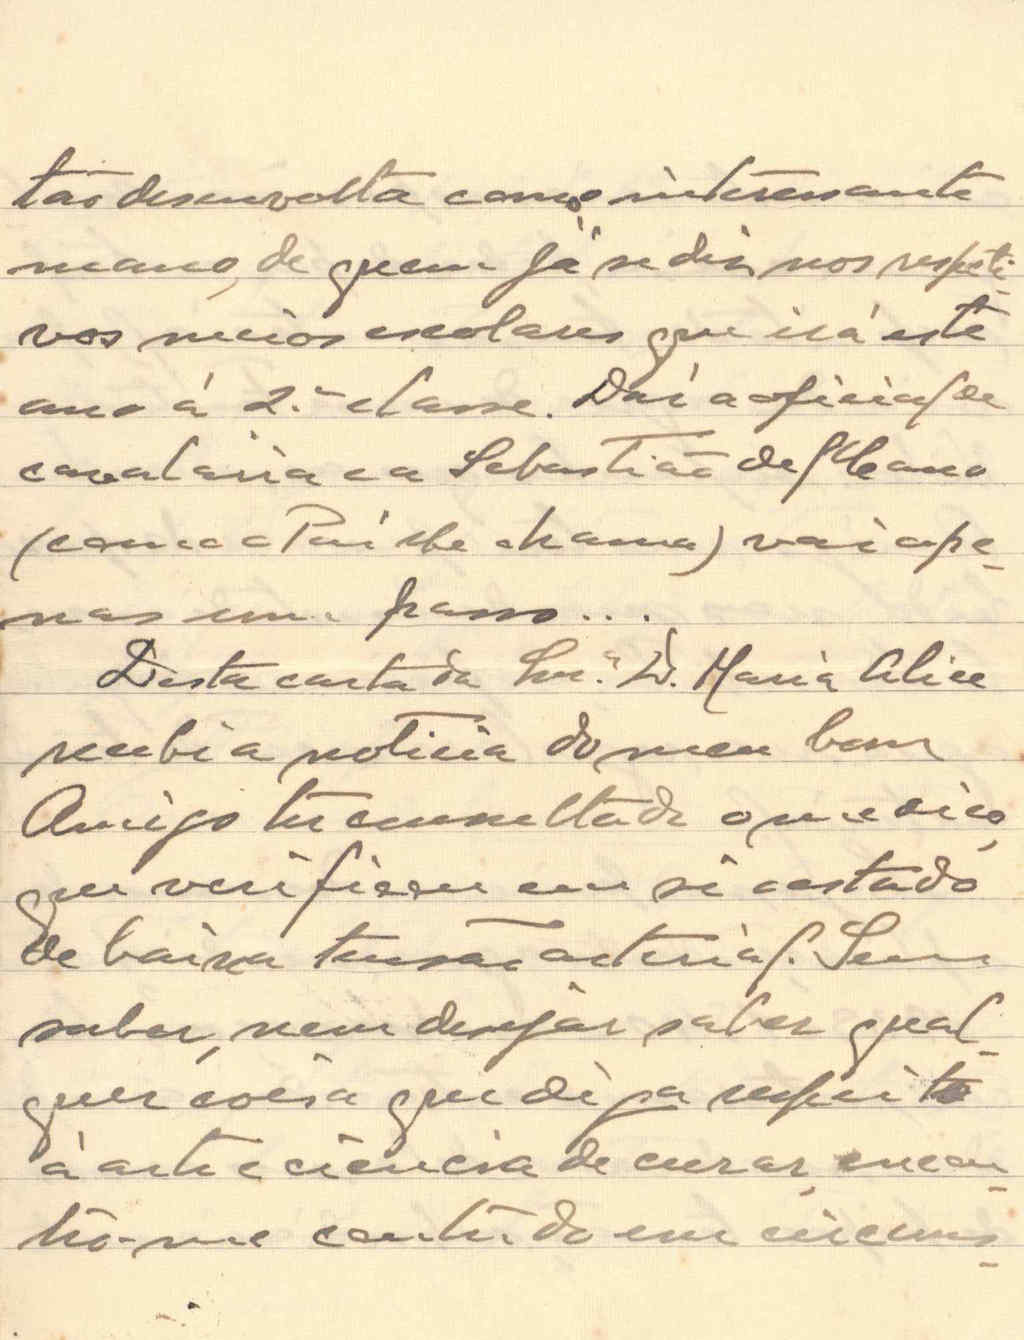 tão desenvolta como interessante
mano, de quem já se diz, nos respeti-
vos meios escolares que irá este
ano á 2.ª classe. Daí a oficial de
cavalaria e a Sebastião de
(como a Pai lhe chama) vai ape-
nas um passo...
Desta carta da Snr.ª D. Maria Alice
recebi a noticia do meu bom
Amigo ter consultado o medico,
que verificou em si o estado
de baixa tensão arterial. Sem
saber, nem desejar saber qual-
quer coisa que diga respeito
á arte e ciencia de curar, encon-
tro-me contudo em circuns-